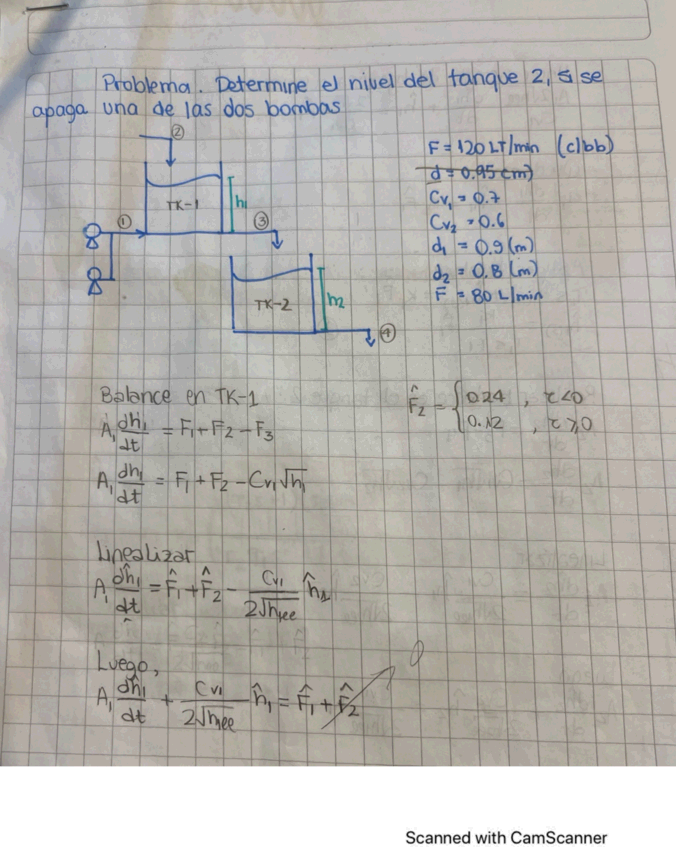 Problema. Determine el nivel del tanque 2, si se
apaga una de las dos bombas
②
TK-1
h₁
①
③
TK-2
h₂
④
F = 120 LT/min (c/bb)
d = 0.95 (m)
Cv₁ = 0.7
Cv₂ = 0.6
d₁ = 0.9 (m)
d₂ = 0.8 (m)
F = 80 L/min
Balance en TK-1
A₁ dh₁/dt = F₁ + F₂ - F₃
A₁ dh₁/dt = F₁ + F₂ - Cv₁√h₁
F̂₂ = { 0.24 , τ<0
0.12 , τ≥0
Linealizar
A₁ dĥ₁/dt = F̂₁ + F̂₂ - Cv₁/(2√h₁ee) ĥ₁
Luego,
A₁ dĥ₁/dt + Cv₁/(2√h₁ee) ĥ₁ = F̂₁ + F̂₂ 0
Scanned with CamScanner